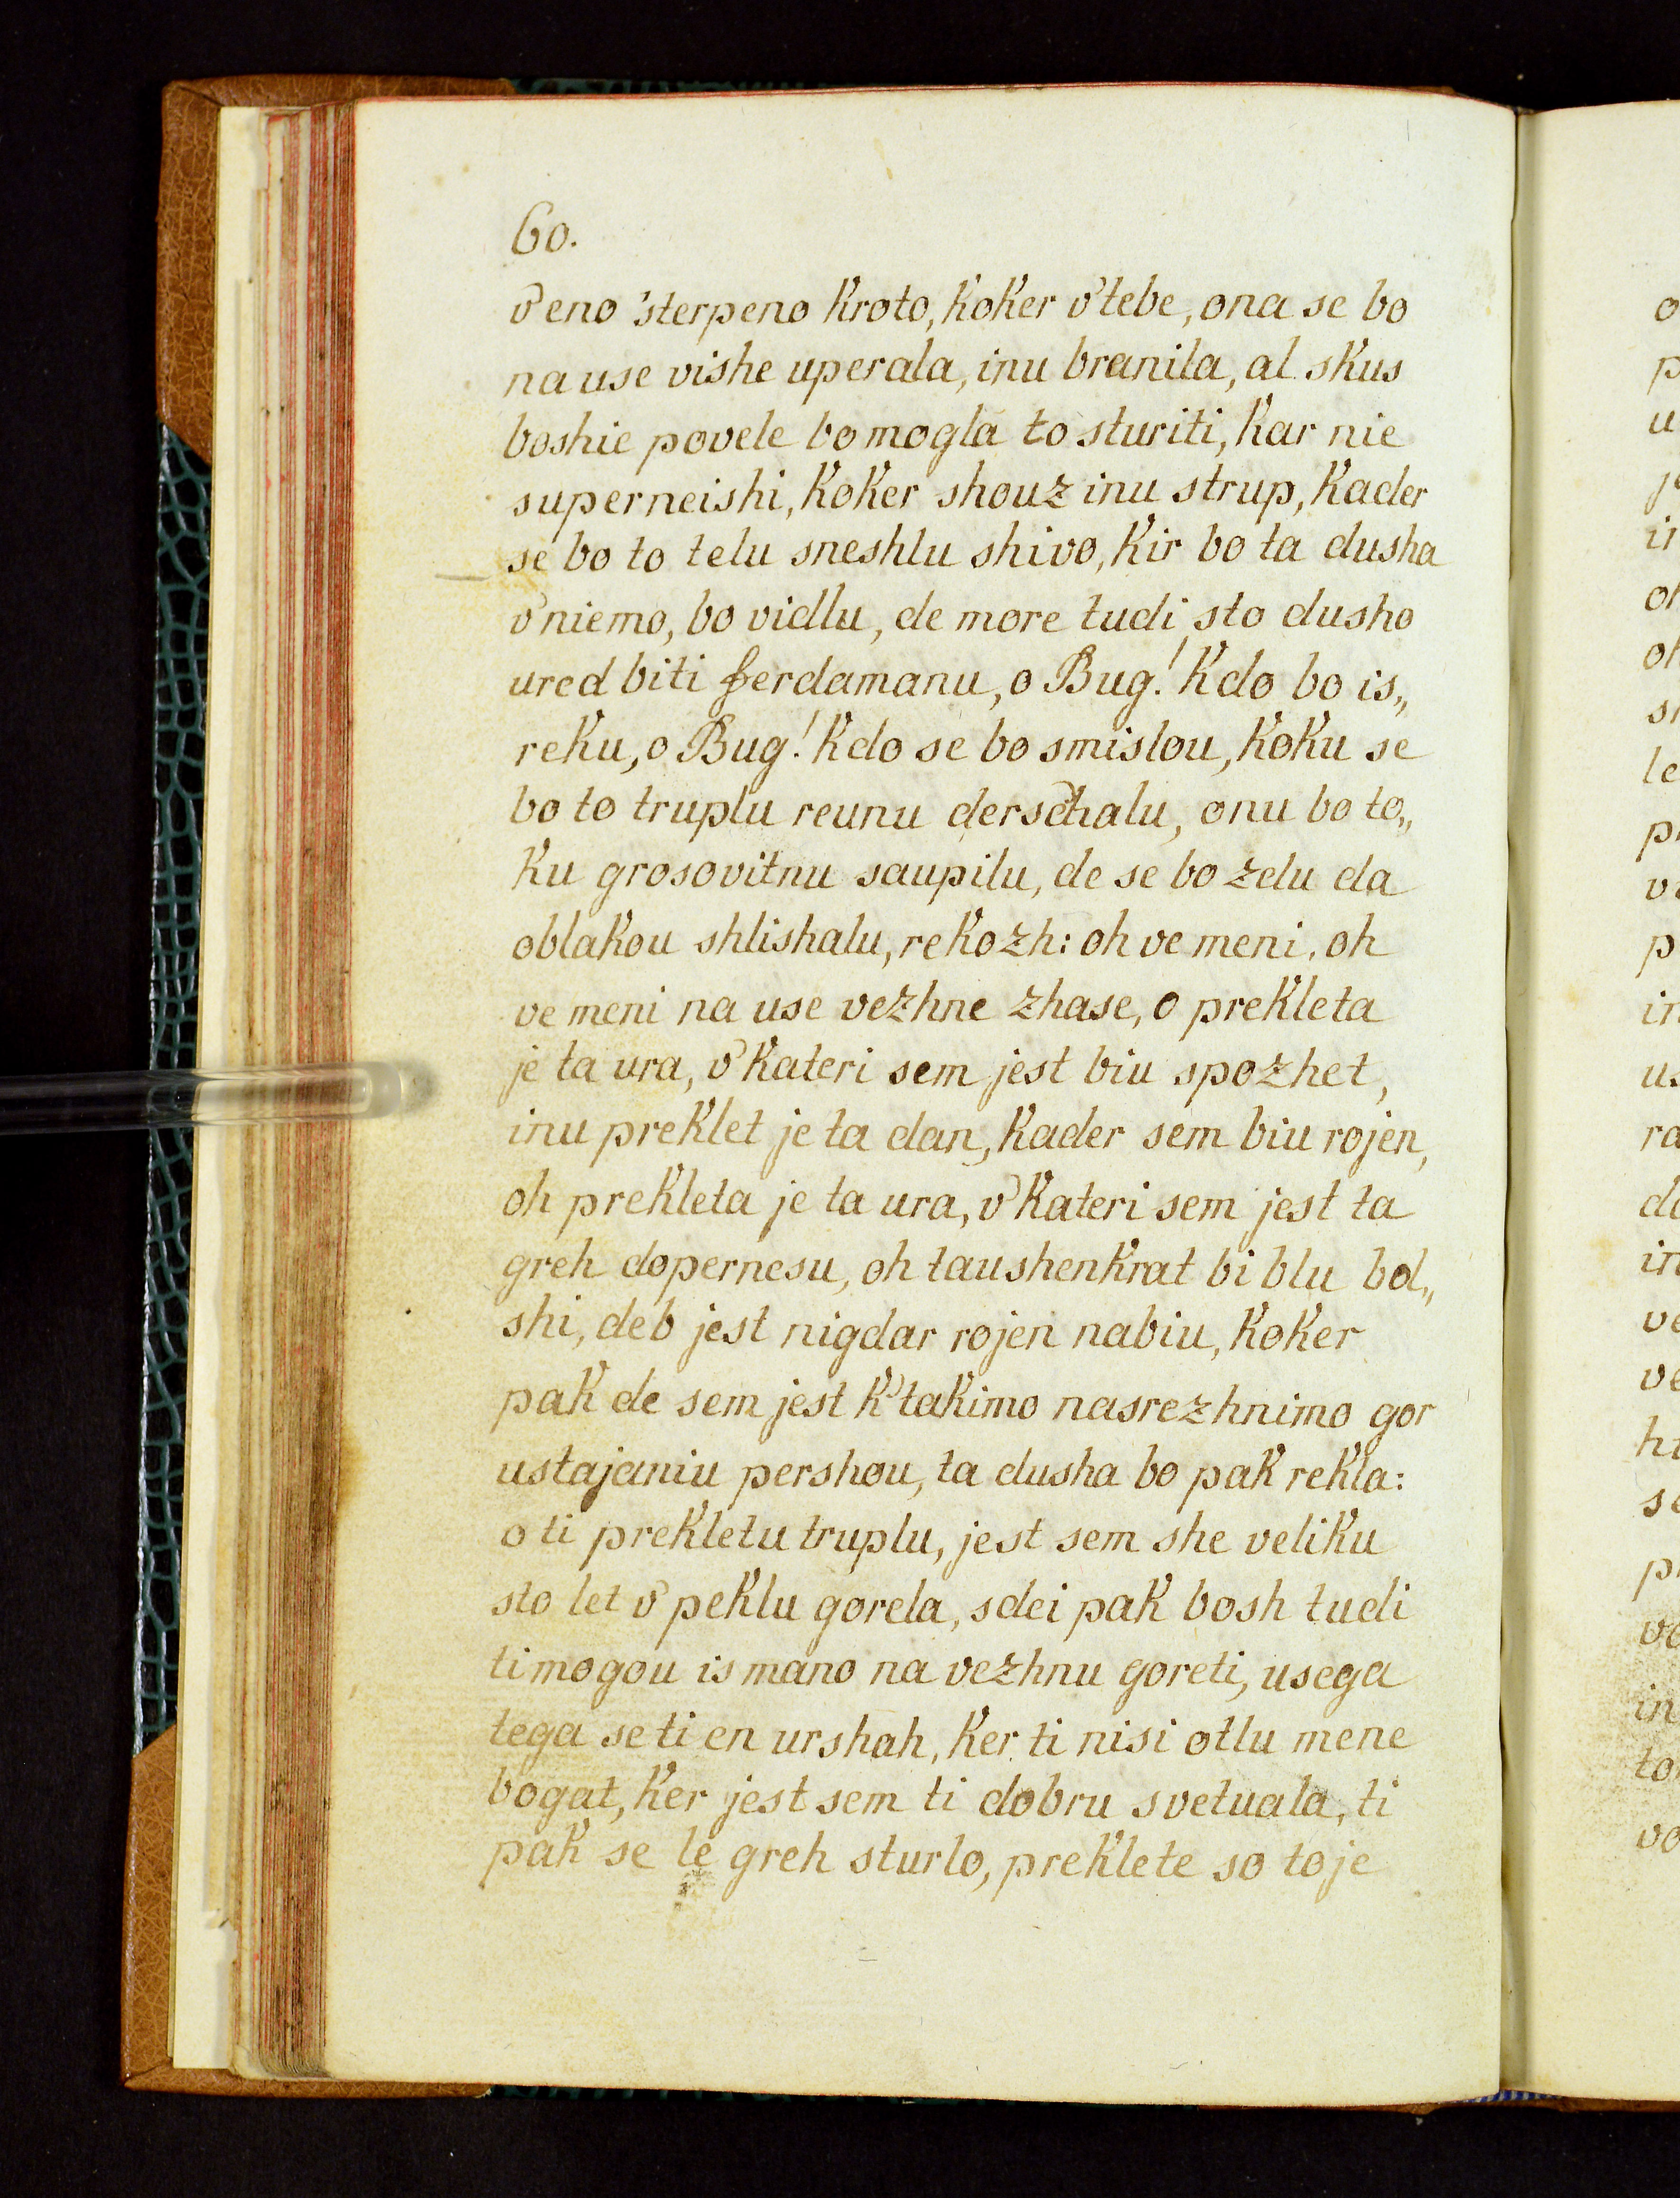 60.
v' eno 'sterpeno kroto, koker v' tebe, ona se bo
na use vishe uperala, inu branila, al skus
boshie povele bo mogla to sturiti, kar nie
superneishi, koker shouz inu strup, kader
se bo to telu sneshlu shivo, kir bo ta dusha
v' niemo, bo vidlu, de more tudi sto dusho
ured biti ferdamanu, o Bug! kdo bo is„
reku, o Bug! kdo se bo smislou, koku se
bo to truplu reunu derschalu, onu bo to„
ku grosovitnu saupilu, de se bo zelu da
oblakou shlishalu, rekozh: oh ve meni, oh
ve meni na use vezhne zhase, o prekleta
je ta ura, v' kateri sem jest biu spozhet,
inu preklet je ta dan, kader sem biu rojen,
oh prekleta je ta ura, v' kateri sem jest ta
greh dopernesu, oh taushenkrat bi blu bol„
shi, deb jest nigdar rojen nabiu, koker
pak de sem jest k' takimo nasrezhnimo gor
ustajaniu pershou, ta dusha bo pak rekla:
o ti prekletu truplu, jest sem she veliku
sto let v' peklu gorela, sdei pak bosh tudi
ti mogou is mano na vezhnu goreti, usega
tega se ti en urshah, ker ti nisi otlu mene
bogat, ker jest sem ti dobru svetuala, ti
pak se le greh sturlo, preklete so toje